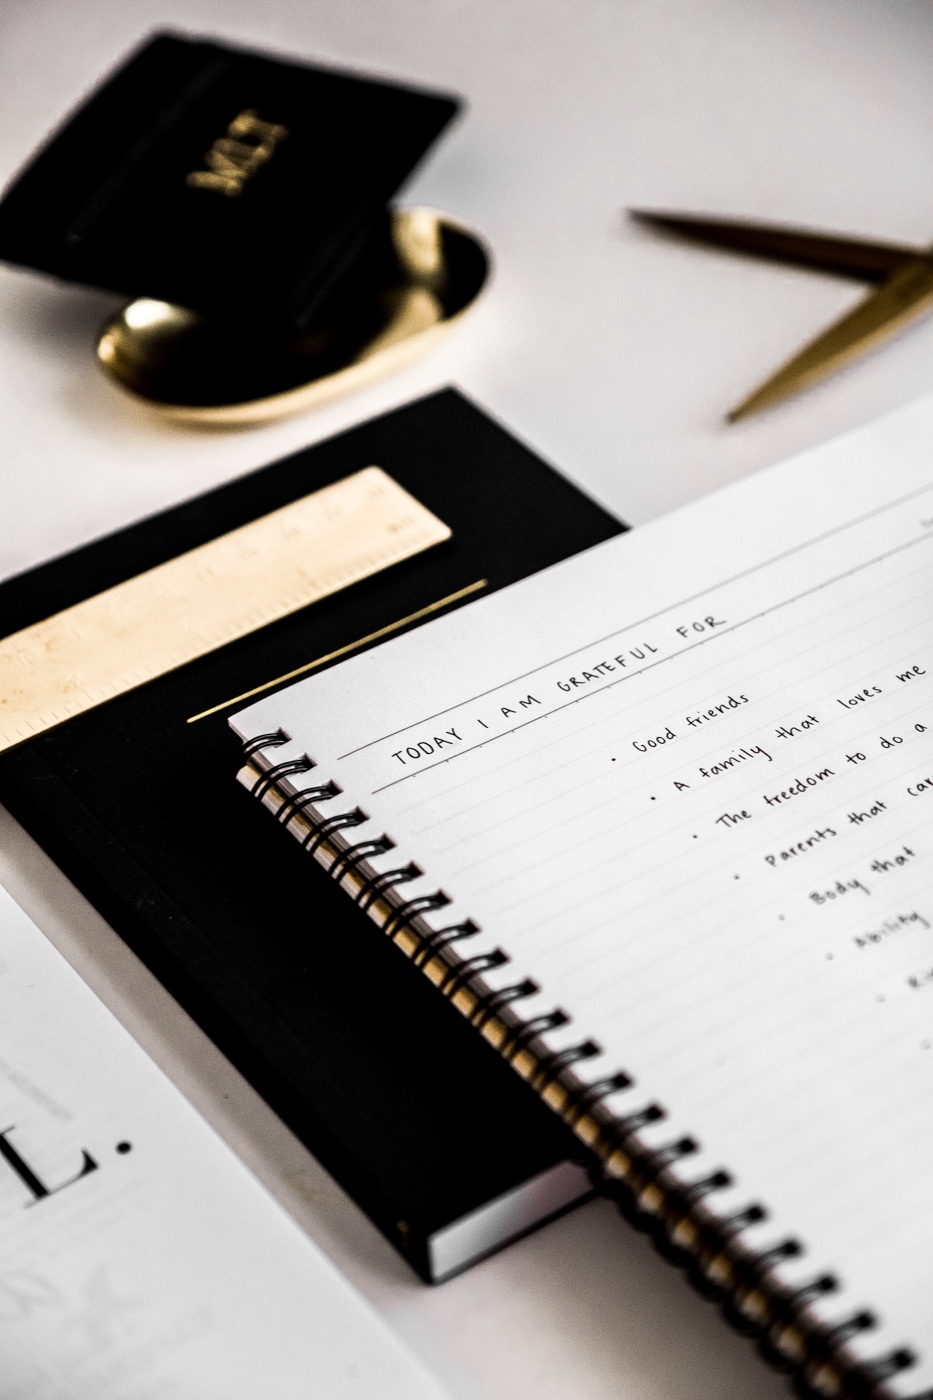 TODAY I AM GRATEFUL FOR
• Good friends
• A family that loves me
• The freedom to do a
• Parents that car
• Body that
• Ability
L.